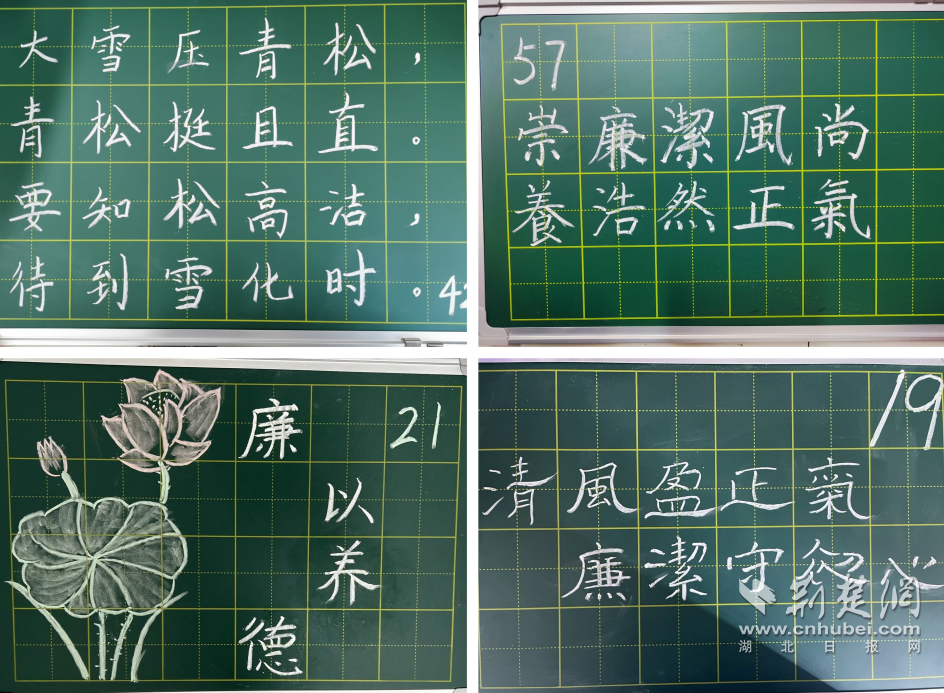 大雪压青松，
青松挺且直。
要知松高洁，
待到雪化时。
42
57
崇廉潔風尚
養浩然正氣
21
廉
以养
德
19
清風盈正氣
廉潔守心
荆楚網
www.cnhubei.com
湖北日报网